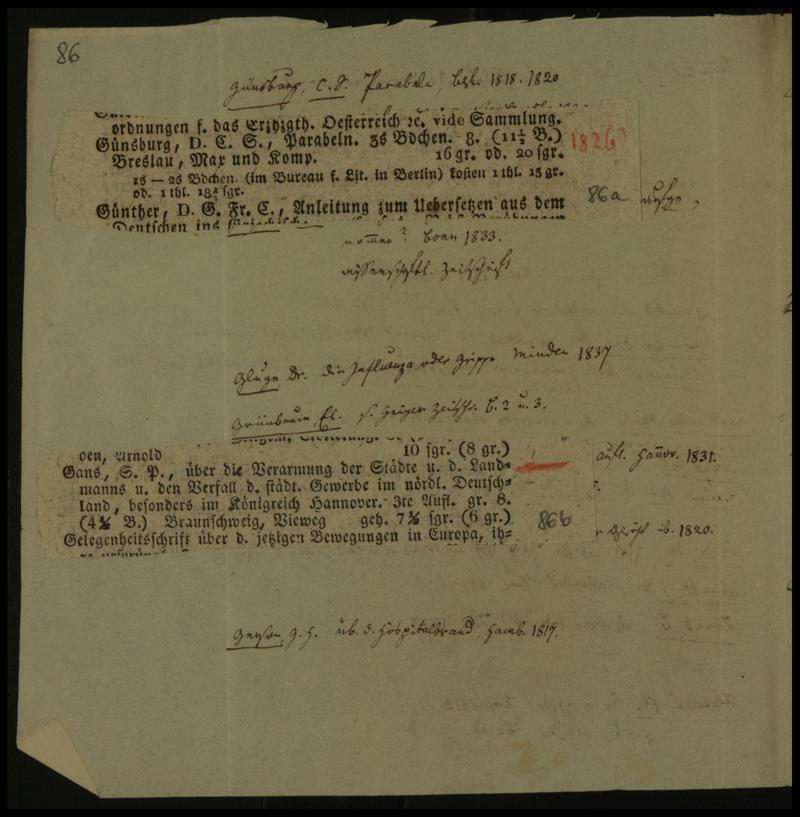 86
Günsburg, C. S. Parabeln, Bsl. 1818. 1820
ordnungen f. das Erzhzgth. Oesterreich ꝛc. vide Sammlung.
Günsburg, D. C. S., Parabeln. 3s Bdchen. 8. (11½ B.) 1826
Breslau, Max und Komp. 16 gr. od. 20 sgr.
1s — 2s Bdchen. (im Bureau f. Lit. in Berlin) kosten 1 thl. 15 gr.
od. 1 thl. 18¾ sgr.
Günther, D. G. Fr. C., Anleitung zum Uebersetzen aus dem 86a
Deutschen ins
Bonn 1833.
wissenschftl. Zeitschrift
Gluge Dr. die Influenza oder Grippe, Minden 1837
Grünbaum, El. s. Geiger Zeitschr. B. 2 u. 3.
oen, Arnold 10 sgr. (8 gr.) aufl. Hannov. 1831.
Gans, S. P., über die Verarmung der Städte u. d. Land-
manns u. den Verfall d. städt. Gewerbe im nördl. Deutsch-
land, besonders im Königreich Hannover. 3te Aufl. gr. 8.
(4¾ B.) Braunschweig, Vieweg geh. 7½ sgr. (6 gr.) 86b
Gelegenheitsschrift über d. jetzigen Bewegungen in Europa, ih- ib. 1820.
Gerson, G. H. üb. d. Hospitalbrand, Hamb. 1817.